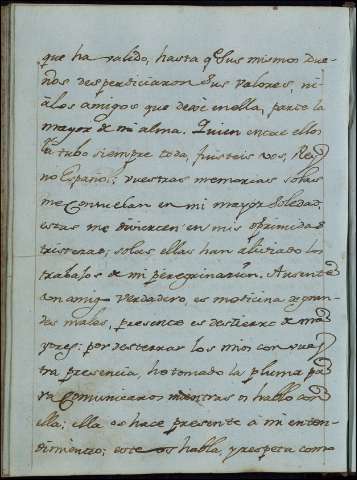 que ha valido, hasta q̃ Sus mismos Due-
ños desperdiciaron Sus valores, ni
à los amigos que dexè en ella, parte la
mayor de mi alma. Quien entre ellos
la tubo siempre toda, fuisteis vos, Rey-
no Español; vuestras memorias solas
me Consuelan en mi mayor Soledad,
estas me divierten en mis oprimidas
tristezas; solas ellas han aliviado los
trabajos de mi peregrinacion. Ausente
un amigo verdadero, es medicina de gran-
des males, presente es destierro de ma-
yores: por desterrar los mios con vues-
tra presencia, he tomado la pluma pa-
ra Comunicaros mientras os hallo con
ella; ella os hace presente à mi enten-
dimiento; este os habla, y respeta como